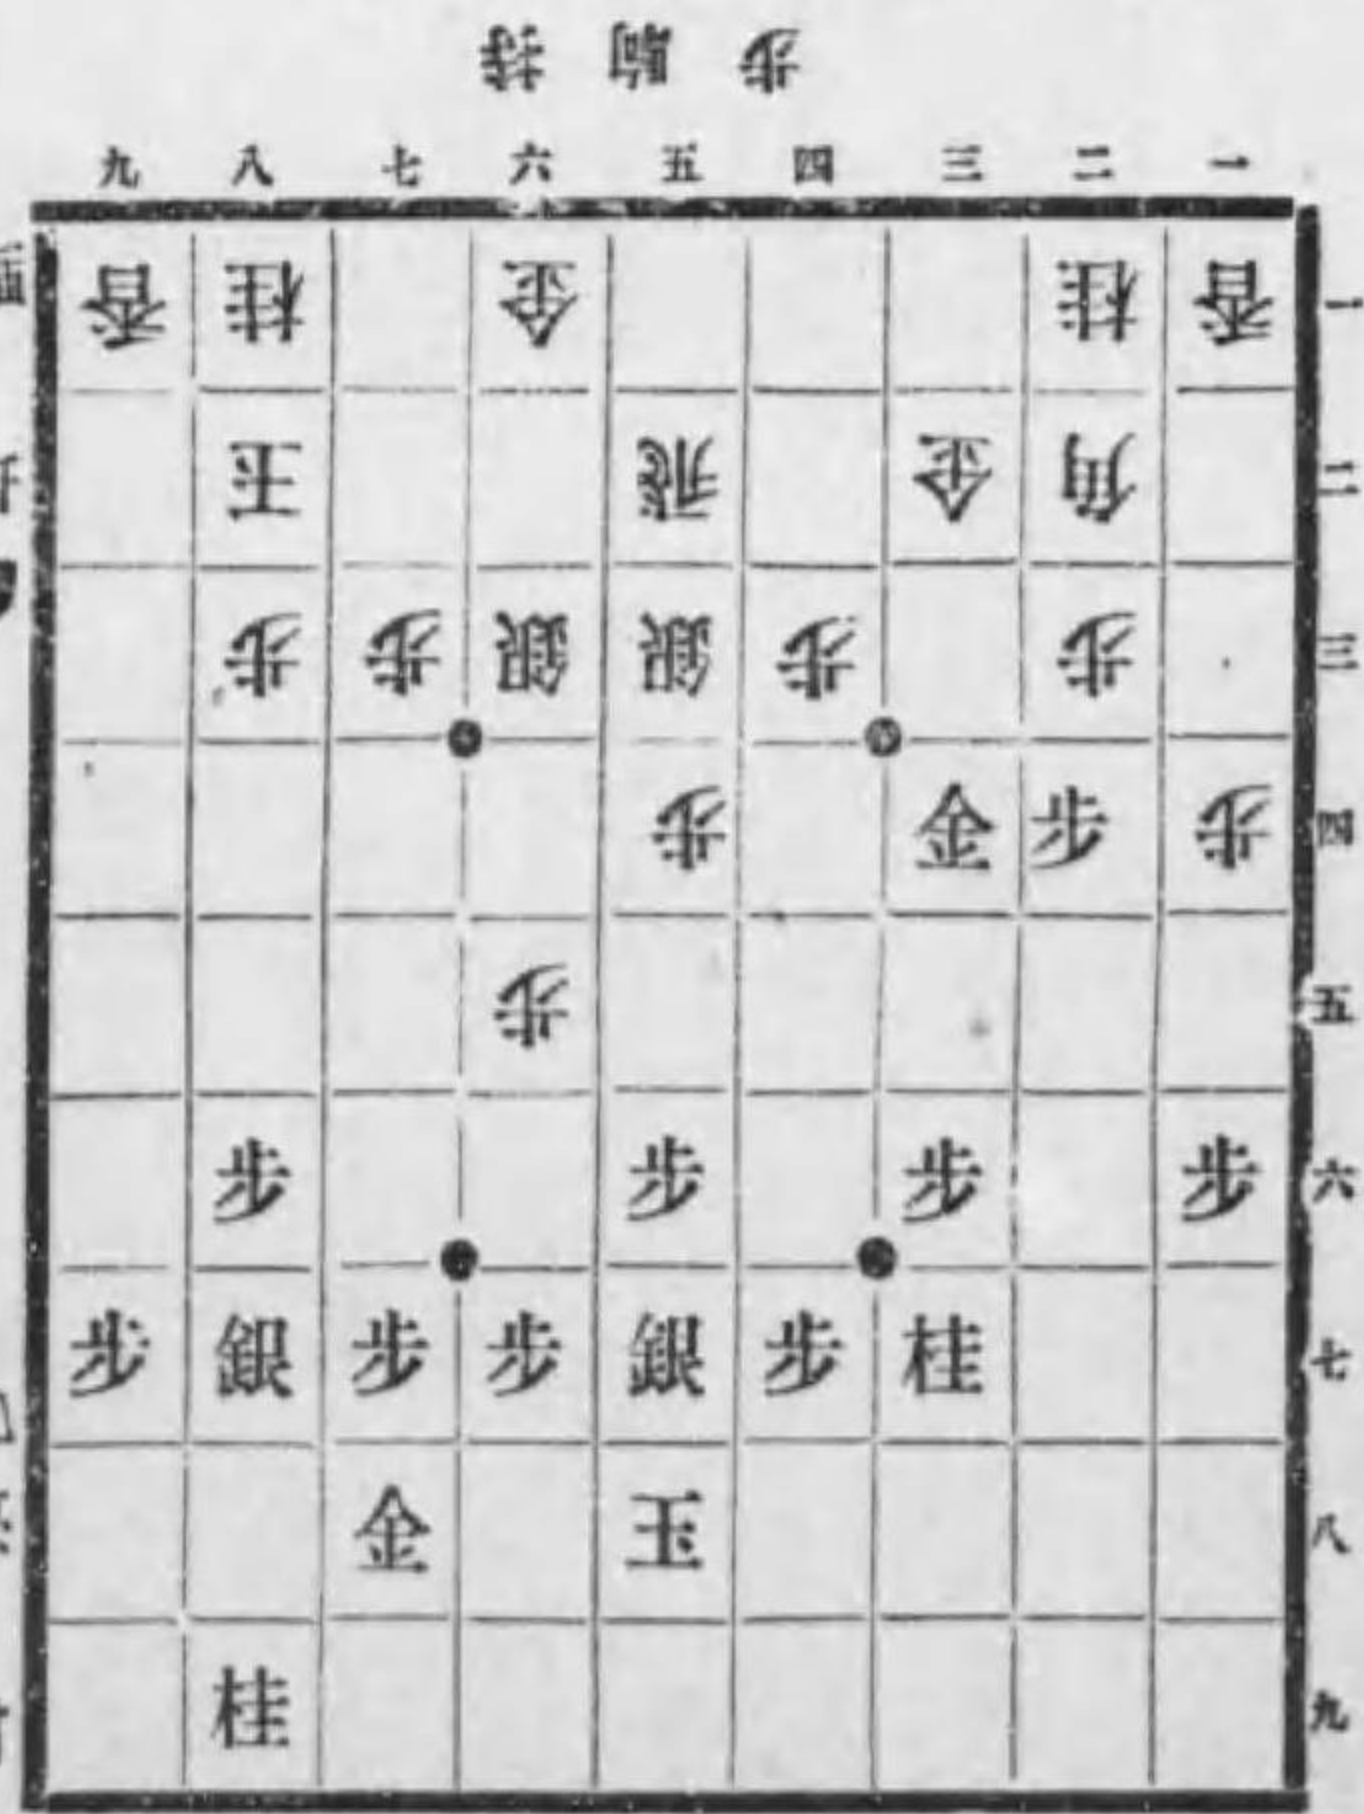 持駒歩
九八七六五四三二一
香桂金桂香一
玉飛金角二
歩歩銀銀歩歩三
歩金歩歩四
歩五
歩歩歩歩六
歩銀歩歩銀歩桂七
金玉八
桂九